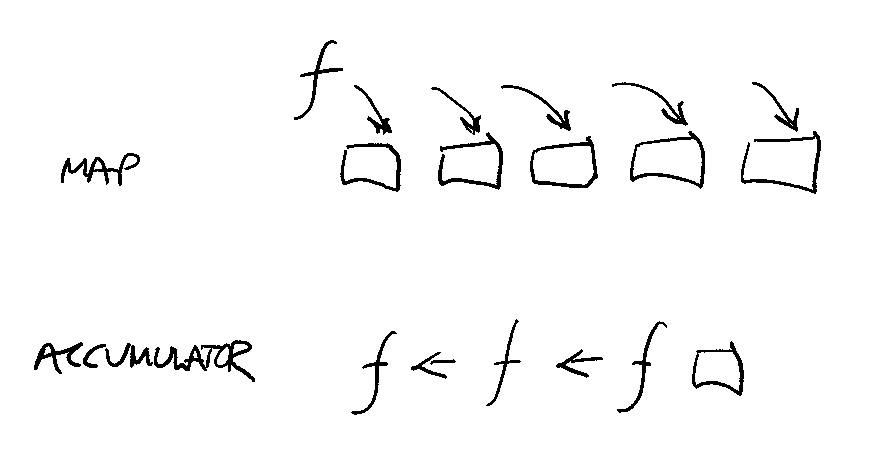 f
MAP
ACCUMULATOR f ← f ← f